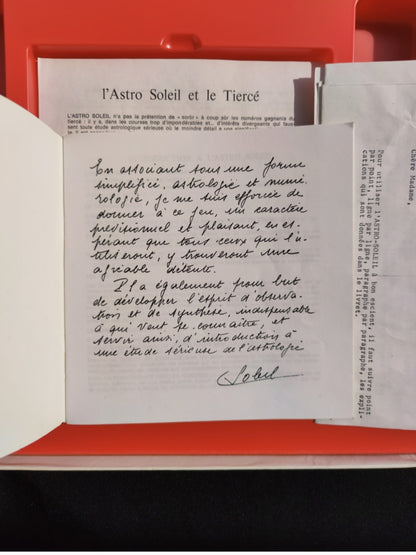 l'Astro Soleil et le Tiercé
L'ASTRO SOLEIL n'a pas la prétention de « sortir » à coup sûr les numéros gagnants du
tiercé : il y a, dans les courses trop d'impondérables et... d'intérêts divergeants qui faus-
sent toute étude astrologique sérieuse où le moindre détail a une
En associant sous une forme
simplifiée, astrologie et numé-
rologie, je me suis efforcée de
donner à ce jeu, un caractère
prévisionnel et plaisant, en es-
pérant que tous ceux qui l'u-
tiliseront, y trouveront une
agréable détente.
Il a également pour but
de développer l'esprit d'observa-
tion et de synthèse, indispensable
à qui veut se connaître, et
servir ainsi, d'introduction à
une étude sérieuse de l'astrologie
Soleil
Chère Madame,
Pour utiliser l'ASTRO-SOLEIL à bon escient, il faut suivre point
par point, ligne par ligne, paragraphe par paragraphe, les expli-
cations qui sont données dans le livret.